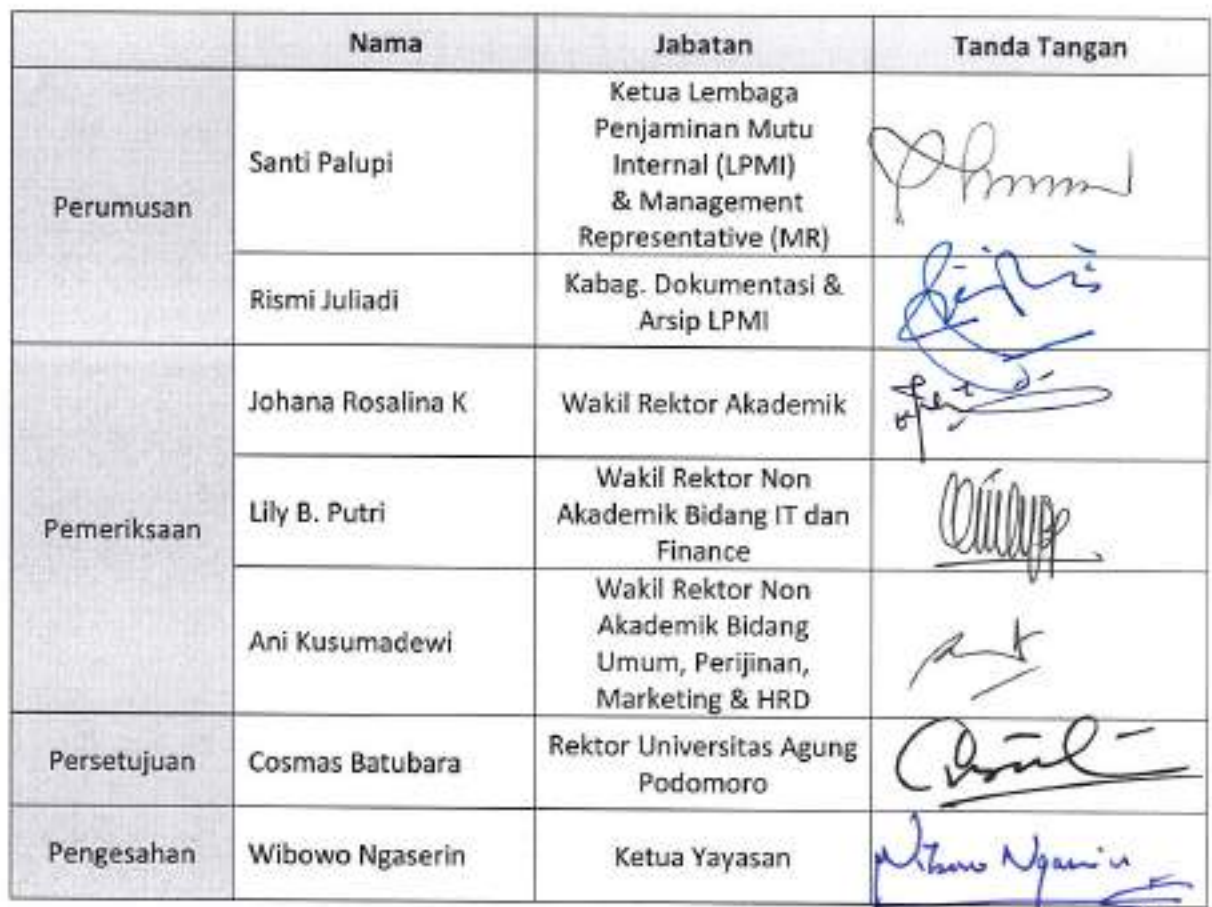 Nama Jabatan Tanda Tangan
Perumusan
Santi Palupi
Ketua Lembaga
Penjaminan Mutu
Internal (LPMI)
& Management
Representative (MR)
Rismi Juliadi
Kabag. Dokumentasi &
Arsip LPMI
Pemeriksaan
Johana Rosalina K
Wakil Rektor Akademik
Lily B. Putri
Wakil Rektor Non
Akademik Bidang IT dan
Finance
Ani Kusumadewi
Wakil Rektor Non
Akademik Bidang
Umum, Perijinan,
Marketing & HRD
Persetujuan
Cosmas Batubara
Rektor Universitas Agung
Podomoro
Pengesahan
Wibowo Ngaserin
Ketua Yayasan